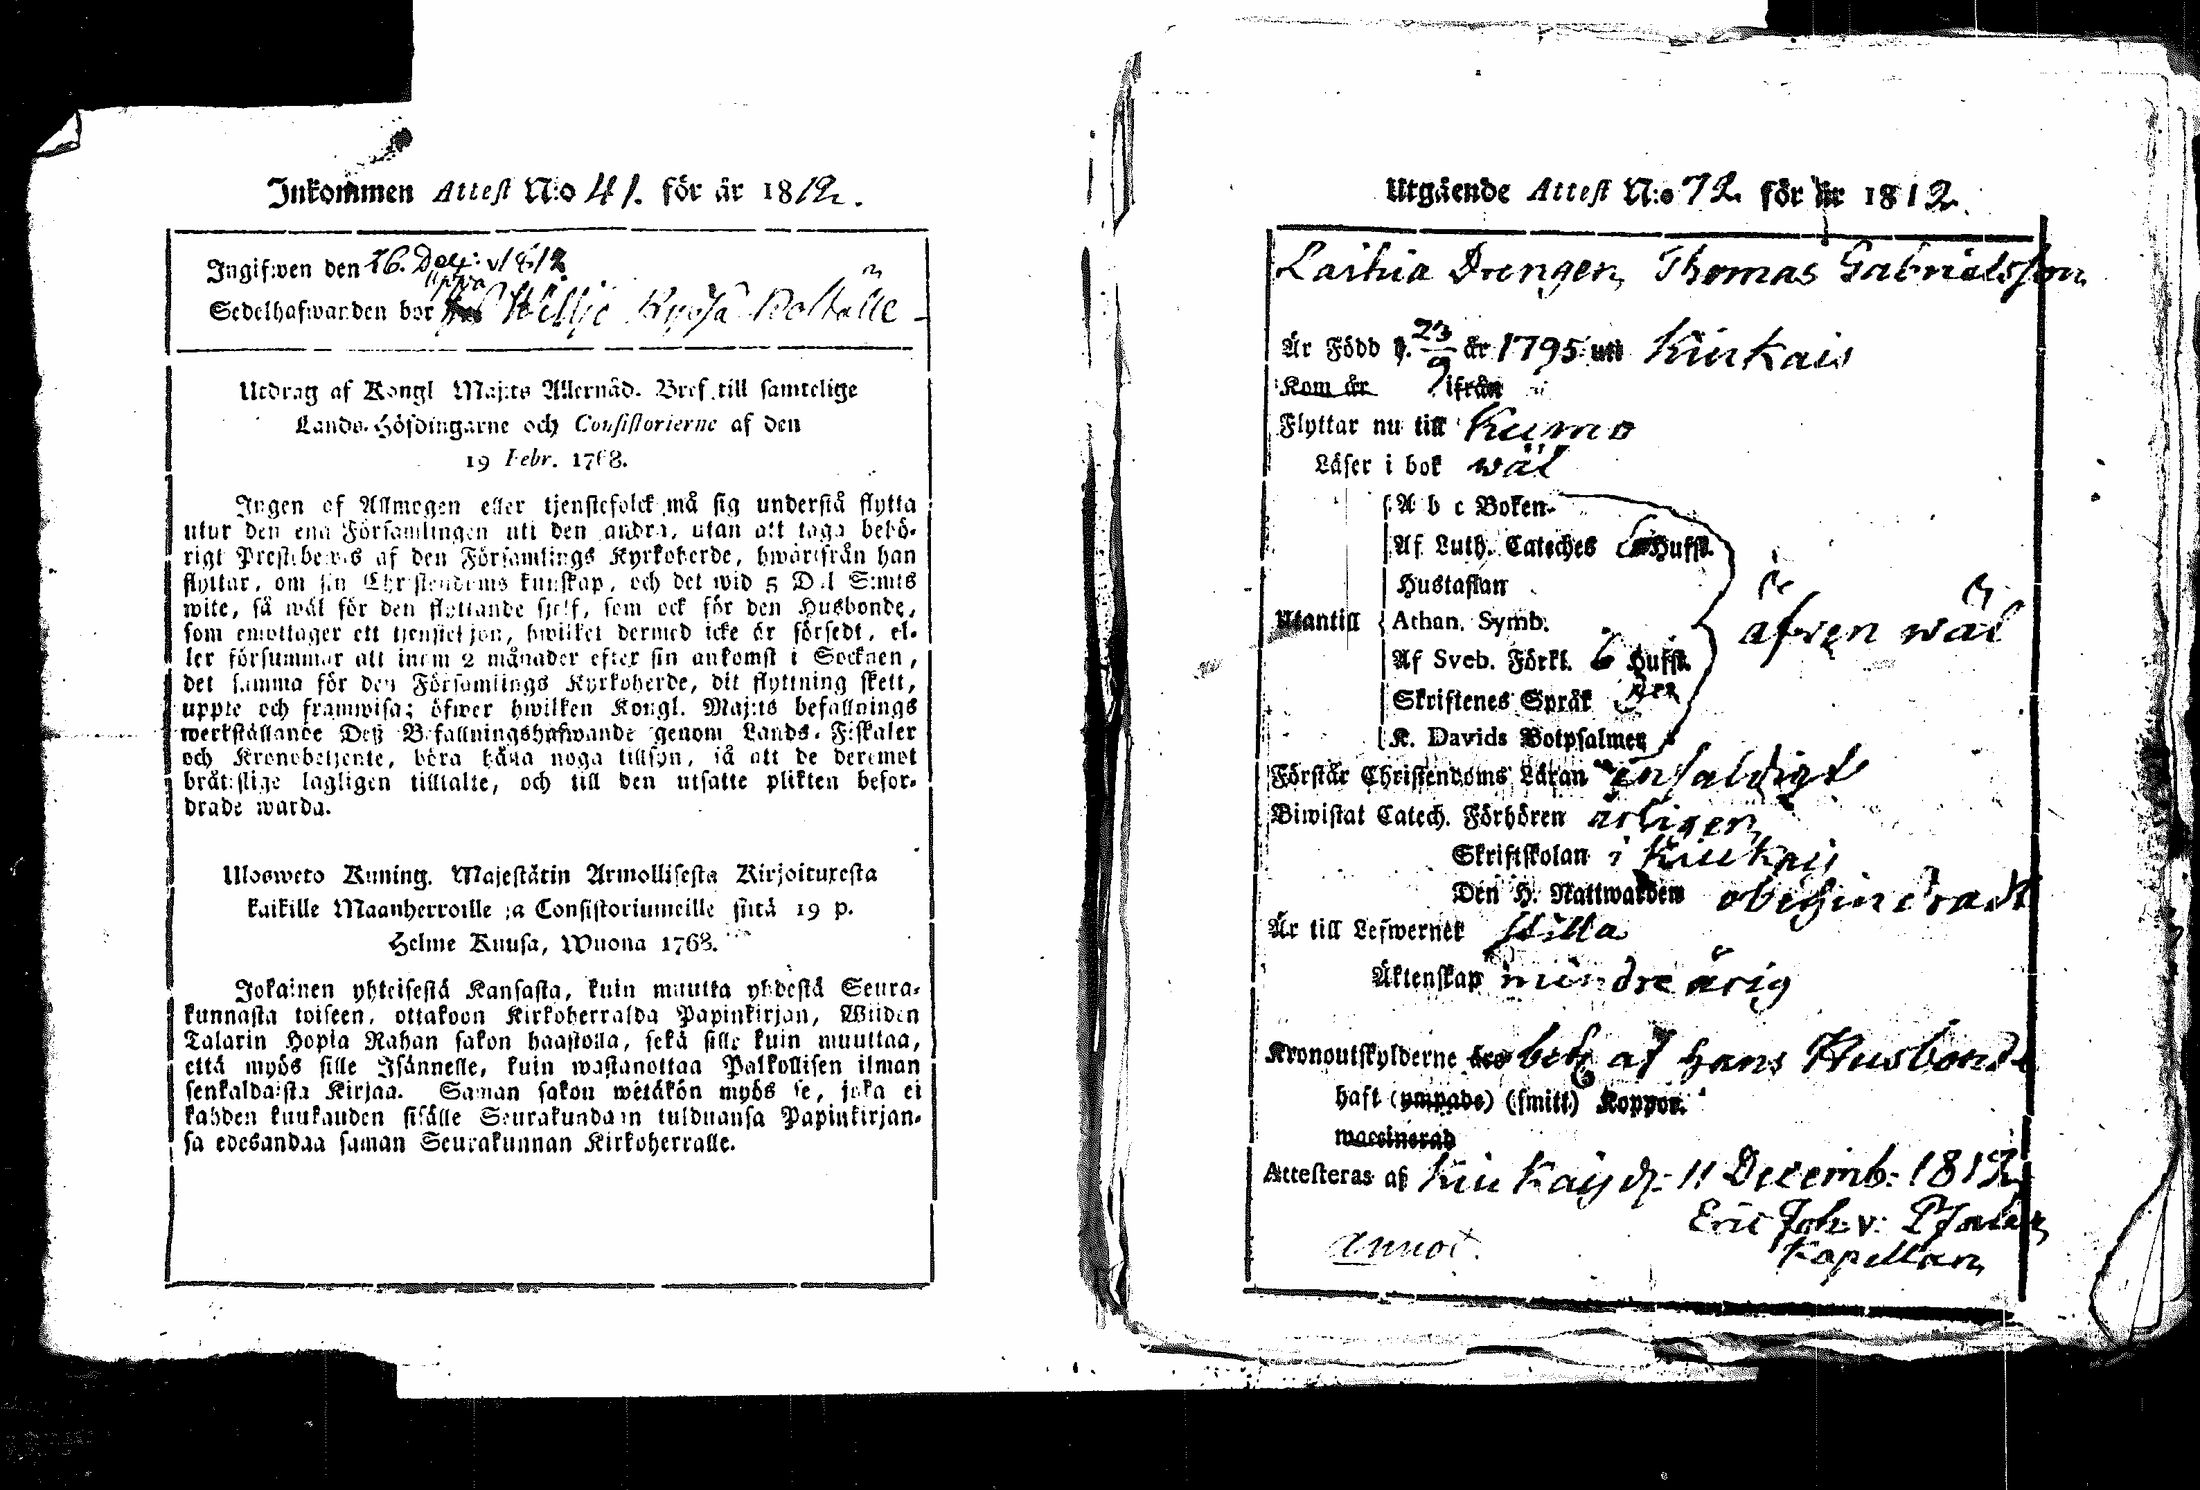 Inkommen Attest N:o 41. för år 1812.
Ingifwen den 26. Dec: 1812
uppå
Sedelhafwanden bor Willje Kyrså Bolställe
Utdrag af Kongl Maj:ts Allernåd. Bref till samtelige
Lands-Höfdingarne och Consistorierne af den
19 Febr. 1768.
Ingen af Allmogen eller tjenstefolck må sig understå flytta
utur den ena Församlingen uti den andra, utan att taga behö-
rigt Prestebewis af den Församlings Kyrkoherde, hwarifrån han
flyttar, om sin Christendoms kunskap, och det wid 5 Dal S:mts
wite, så wäl för den flyttande sjelf, som ock för den Husbonde,
som emottager ett tjenstehjon, hwilket dermed icke är försedt, el-
ler försummar att inom 2 månader efter sin ankomst i Socknen,
det samma för den Församlings Kyrkoherde, dit flyttning skett,
uppte och framwisa; öfwer hwilken Kongl. Maj:ts befallnings
werkställande Deß Befallningshafwande genom Lands-Fiskaler
och Kronobetjente, böra hålla noga tillsyn, så att de deremot
brätslige lagligen tilltalte, och till den utsatte plikten befor-
drade warda.
Ulosweto Kuning. Majestätin Armollisesta Kirjoituxesta
kaikille Maanherroille ja Consistoriumeille siitä 19 p.
Helme Kuusa, Wuona 1768.
Jokainen yhteisestä Kansasta, kuin muutta yhdestä Seura-
kunnasta toiseen, ottakoon Kirkoherralda Papinkirjan, Wiiden
Talarin Hopia Rahan sakon haastolla, sekä sille kuin muuttaa,
että myös sille Isännelle, kuin wastanottaa Palkollisen ilman
senkaldaista Kirjaa. Saman sakon wetäkön myös se, joka ei
kahden kuukauden sisälle Seurakundaan tulduansa Papinkirjan-
sa edesandaa saman Seurakunnan Kirkoherralle.
Utgående Attest N:o 72. för år 1812.
Laihia Drengen Thomas Gabrielsson
Är Född d. 23/9 år 1795 uti Kiukais
Kom år ifrån
Flyttar nu till Kumo
Läser i bok wäl
A b c Boken
Af Luth. Cateches Hufst.
Hustaflan
Utantill Athan. Symb. äfwen wäl
Af Sveb. Förkl. 6 Hufst.
Skriftenes Språk
K. Davids Botpsalmer
Förstår Christendoms Läran enfaldigt
Biwistat Catech. Förhören årligen
Skriftskolan i Kiukais
Den H. Nattwarden obehindradt
Är till Lefwernet stilla
Äktenskap minderårig
Kronoutskylderne bet. af hans Husbonde
haft (ympade) (smitt) Koppor.
waccinerad
Attesteras af Kiukais d: 11 Decemb: 1812
Eric Joh: v: Pfaler
Kapellan
Annot.